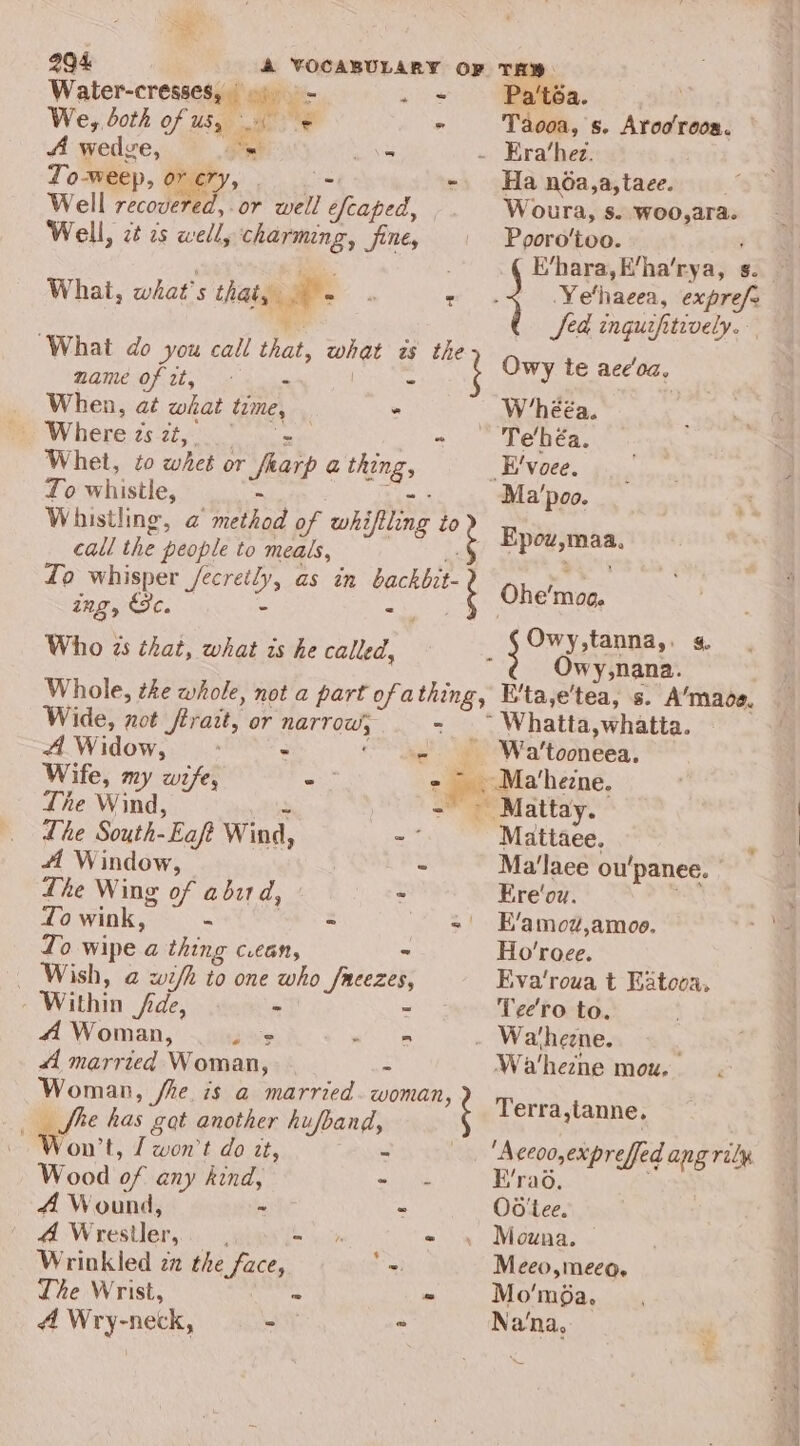 294 A VOCABULARY OF THE
Water-cresses, - - Pa'töa.
We, both of us, - - Täooa, s. Aroo'rooa.
A wedge, - - - Era'hei.
To weep, or cry, - - Ha nöa,a,taee.
Well recovered, or well eſcaped, Woura, s. woo,ara.
Well, it is well, charming, fine, Pooro'too.
What, what's that, - - { E'hara,E'ha'rya, s. Ye'haeea, expreſ-ſed inquiſitively.
What do you call that, what is the name of it, - - } Owy te aee'oa.
When, at what time, - W'hēēa.
Where is it, - - Te'hēa.
Whet, to whet or ſharp a thing, E'voee.
To whistle, - - Ma'poo.
Whistling, a method of whiſtling to call the people to meals, } Epou,maa.
To whisper ſecretly, as in backbit-ing, &c. - - } Ohe'moo.
Who is that, what is he called, - { Owy,tanna, s. Owy,nana.
Whole, the whole, not a part of a thing, E'ta,e'tea, s. A'maoe.
Wide, not ſtrait, or narrow, - Whatta,whatta.
A Widow, - - Wa'tooneea.
Wife, my wife, - - Ma'heine.
The Wind, - - Mattay.
The South-Eaſt Wind, - Mattaee.
A Window, - Ma'laee ou'panee.
The Wing of a bird, - Ere'ou.
To wink, - - - E'amou,amoo.
To wipe a thing clean, - Ho'roee.
Wish, a wiſh to one who ſneezes, Eva'roua t Eätooa.
Within ſide, - - Tee'ro to.
A Woman, - - - Wa'heine.
A married Woman, - Wa'heine mou.
Woman, ſhe is a married woman, ſhe has got another huſband, } Terra,tanne.
Won't, I won't do it, - 'Aeeoo,expreſſed angrily.
Wood of any kind, - - E'raö.
A Wound, - - Oö'tee.
A Wrestler, - - Mouna.
Wrinkled in the face, - Meeo,meeo.
The Wrist, - - Mo'möa.
A Wry-neck, - - Na'na,